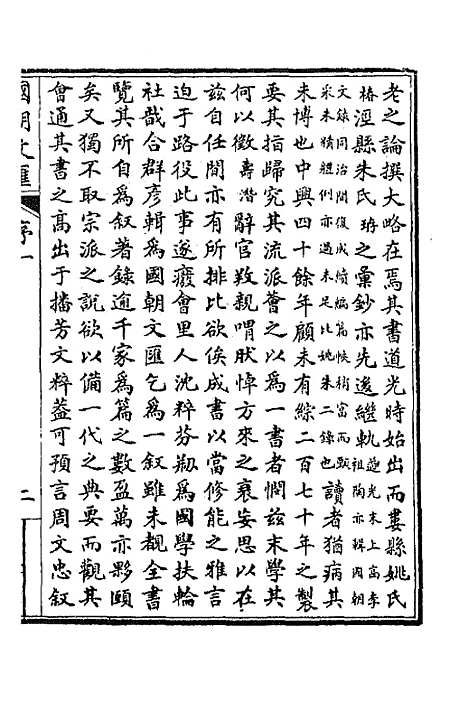 老之論撰大略在焉其書道光時始出而婁縣姚氏
椿涇縣朱氏珔之彙鈔亦先後繼軌道光末上高李祖陶亦輯國朝
文錄同治間復成續編篇帙稍富而甄采未精體例亦遜未足比姚朱二錄也讀者猶病其
未博也中興四十餘年顧未有綜二百七十年之製
要其指歸究其流派薈之以為一書者憪茲末學其
何以徵壽潛辭官歎親喟肰悼方來之衰妄思以在
茲自任間亦有所排比欲俟成書以當修能之雅言
迫于路役此事遂癈會里人沈粹芬刱為國學扶輪
社戠合群彥輯為國朝文匯乞為一叙雖未覩全書
覽其所自為叙著錄逾千家為篇之數盈萬亦夥頤
矣又獨不取宗派之說欲以備一代之典要而觀其
會通其書之高出于播芳文粹葢可預言周文忠叙
國朝文匯
序一
二